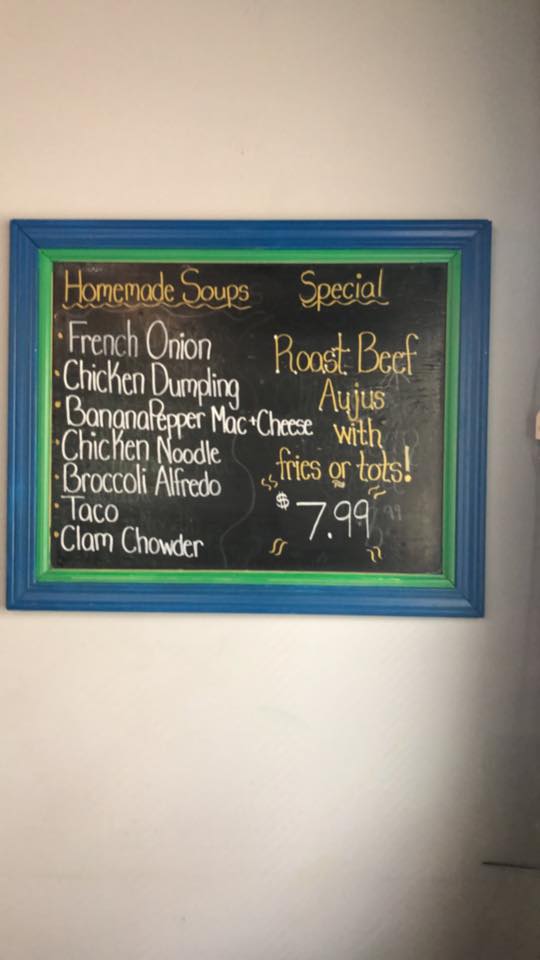 Homemade Soups
· French Onion
· Chicken Dumpling
· BananaPepper Mac+Cheese
· Chicken Noodle
· Broccoli Alfredo
· Taco
· Clam Chowder
Special
Roast Beef
Aujus
with
fries or tots!
$7.99